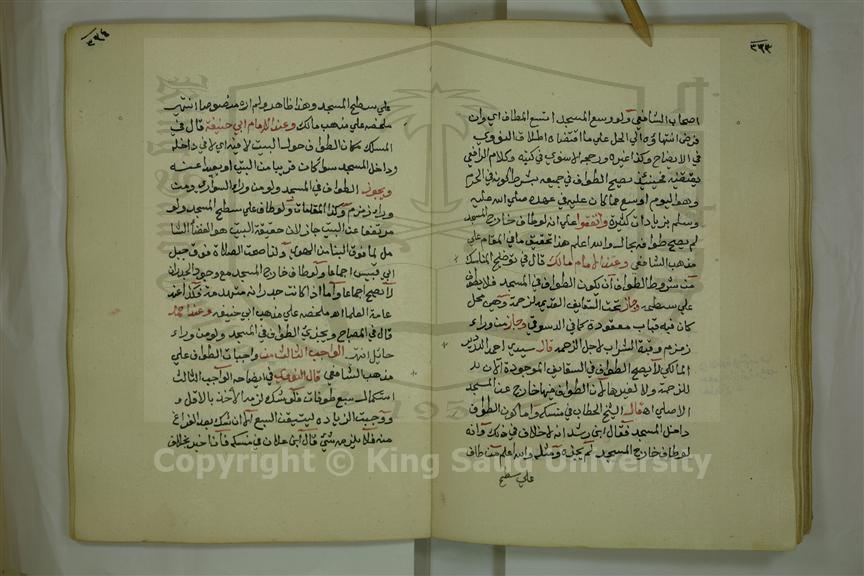 ٣٦٣
اصحاب الشافعي ولو وسع المسجد اتسع المطاف اي وان
فرض انتهاؤه الي الحل علي ما اقتضاه اطلاق النووي
في الايضاح وكذا غيره ورجحه الاسنوي في كتبه وكلام الرافعي
يقتضيه فحينئذ يصح الطواف في جميعه بشرط كونه في الحرم
وهو اليوم اوسع مما كان عليه في عهده صلي الله عليه
وسلم بزيادات كثيرة واتفقوا علي انه لو طاف خارج المسجد
لم يصح طوافه بحال والله اعلم هذا تحقيق ما في المقام علي
مذهب الشافعي وعند الامام مالك قال في توضيح المناسك
من شروط الطواف ان يكون الطواف في المسجد فلا يطوف
علي سطحه وجاز تحت السقايف القديمه لزحمة وهي محل
كان فيه قباب معقودة كما في الدسوقي وجاز من وراء
زمزم وقبة الشراب لاجل الزحمه قال سيدي احمد الدردير
المالكي لا يصح الطواف في السقايف الموجودة الان لا
للزحمة ولا لغيرها لان الطواف فيها خارج عن المسجد
الاصلي اه قال الشيخ الحطاب في منسكه واما كون الطواف
داخل المسجد فقال ابن رشد انه لا خلاف في ذلك وانه
لو طاف خارج المسجد لم يجزه ومثله والله اعلم من طاف
علي سطح
٣٦٤
علي سطح المسجد وهذا ظاهر ولم اره منصوصا انتهي
ملخصه علي مذهب مالك وعند الامام ابي حنيفة قال في
المسلك مكان الطواف حول البيت لا فيه اي لا في داخله
وداخل المسجد سوا كان قريبا من البيت او بعيدا عنه
ويجوز الطواف في المسجد ولو من وراء السواري ومن
وراء زمزم وكذا المقامات ولو طاف علي سطح المسجد ولو
مرتفعا عن البيت جاز لان حقيقة البيت هو الفضا الشا
مل لما فوق البنا من الهوي ولذا صحت الصلاة فوق جبل
ابي قبيس اجماعا ولو طاف خارج المسجد مع وجود الجدران
لا يصح اجماعا واما اذا كانت جدرانه منهدمة فكذا عند
عامة العلما اه ملخصه علي مذهب ابي حنيفه وعند احمد
قال في المصباح ويجزئ الطواف في المسجد ولو من وراء
حايل انتهي الواجب الثالث من واجبات الطواف علي
مذهب الشافعي قال النووي في ايضاحه الواجب الثالث
استكمال سبع طوفات فلو شك لزمه الاخذ بالاقل و
ووجبت الزياده ليتيقن السبع الا ان شك بعد الفراغ
منه فلا يلزمه شئ قال ابن علان في منسكه فان اخبر بخلاف
Copyright © King Saud University
195